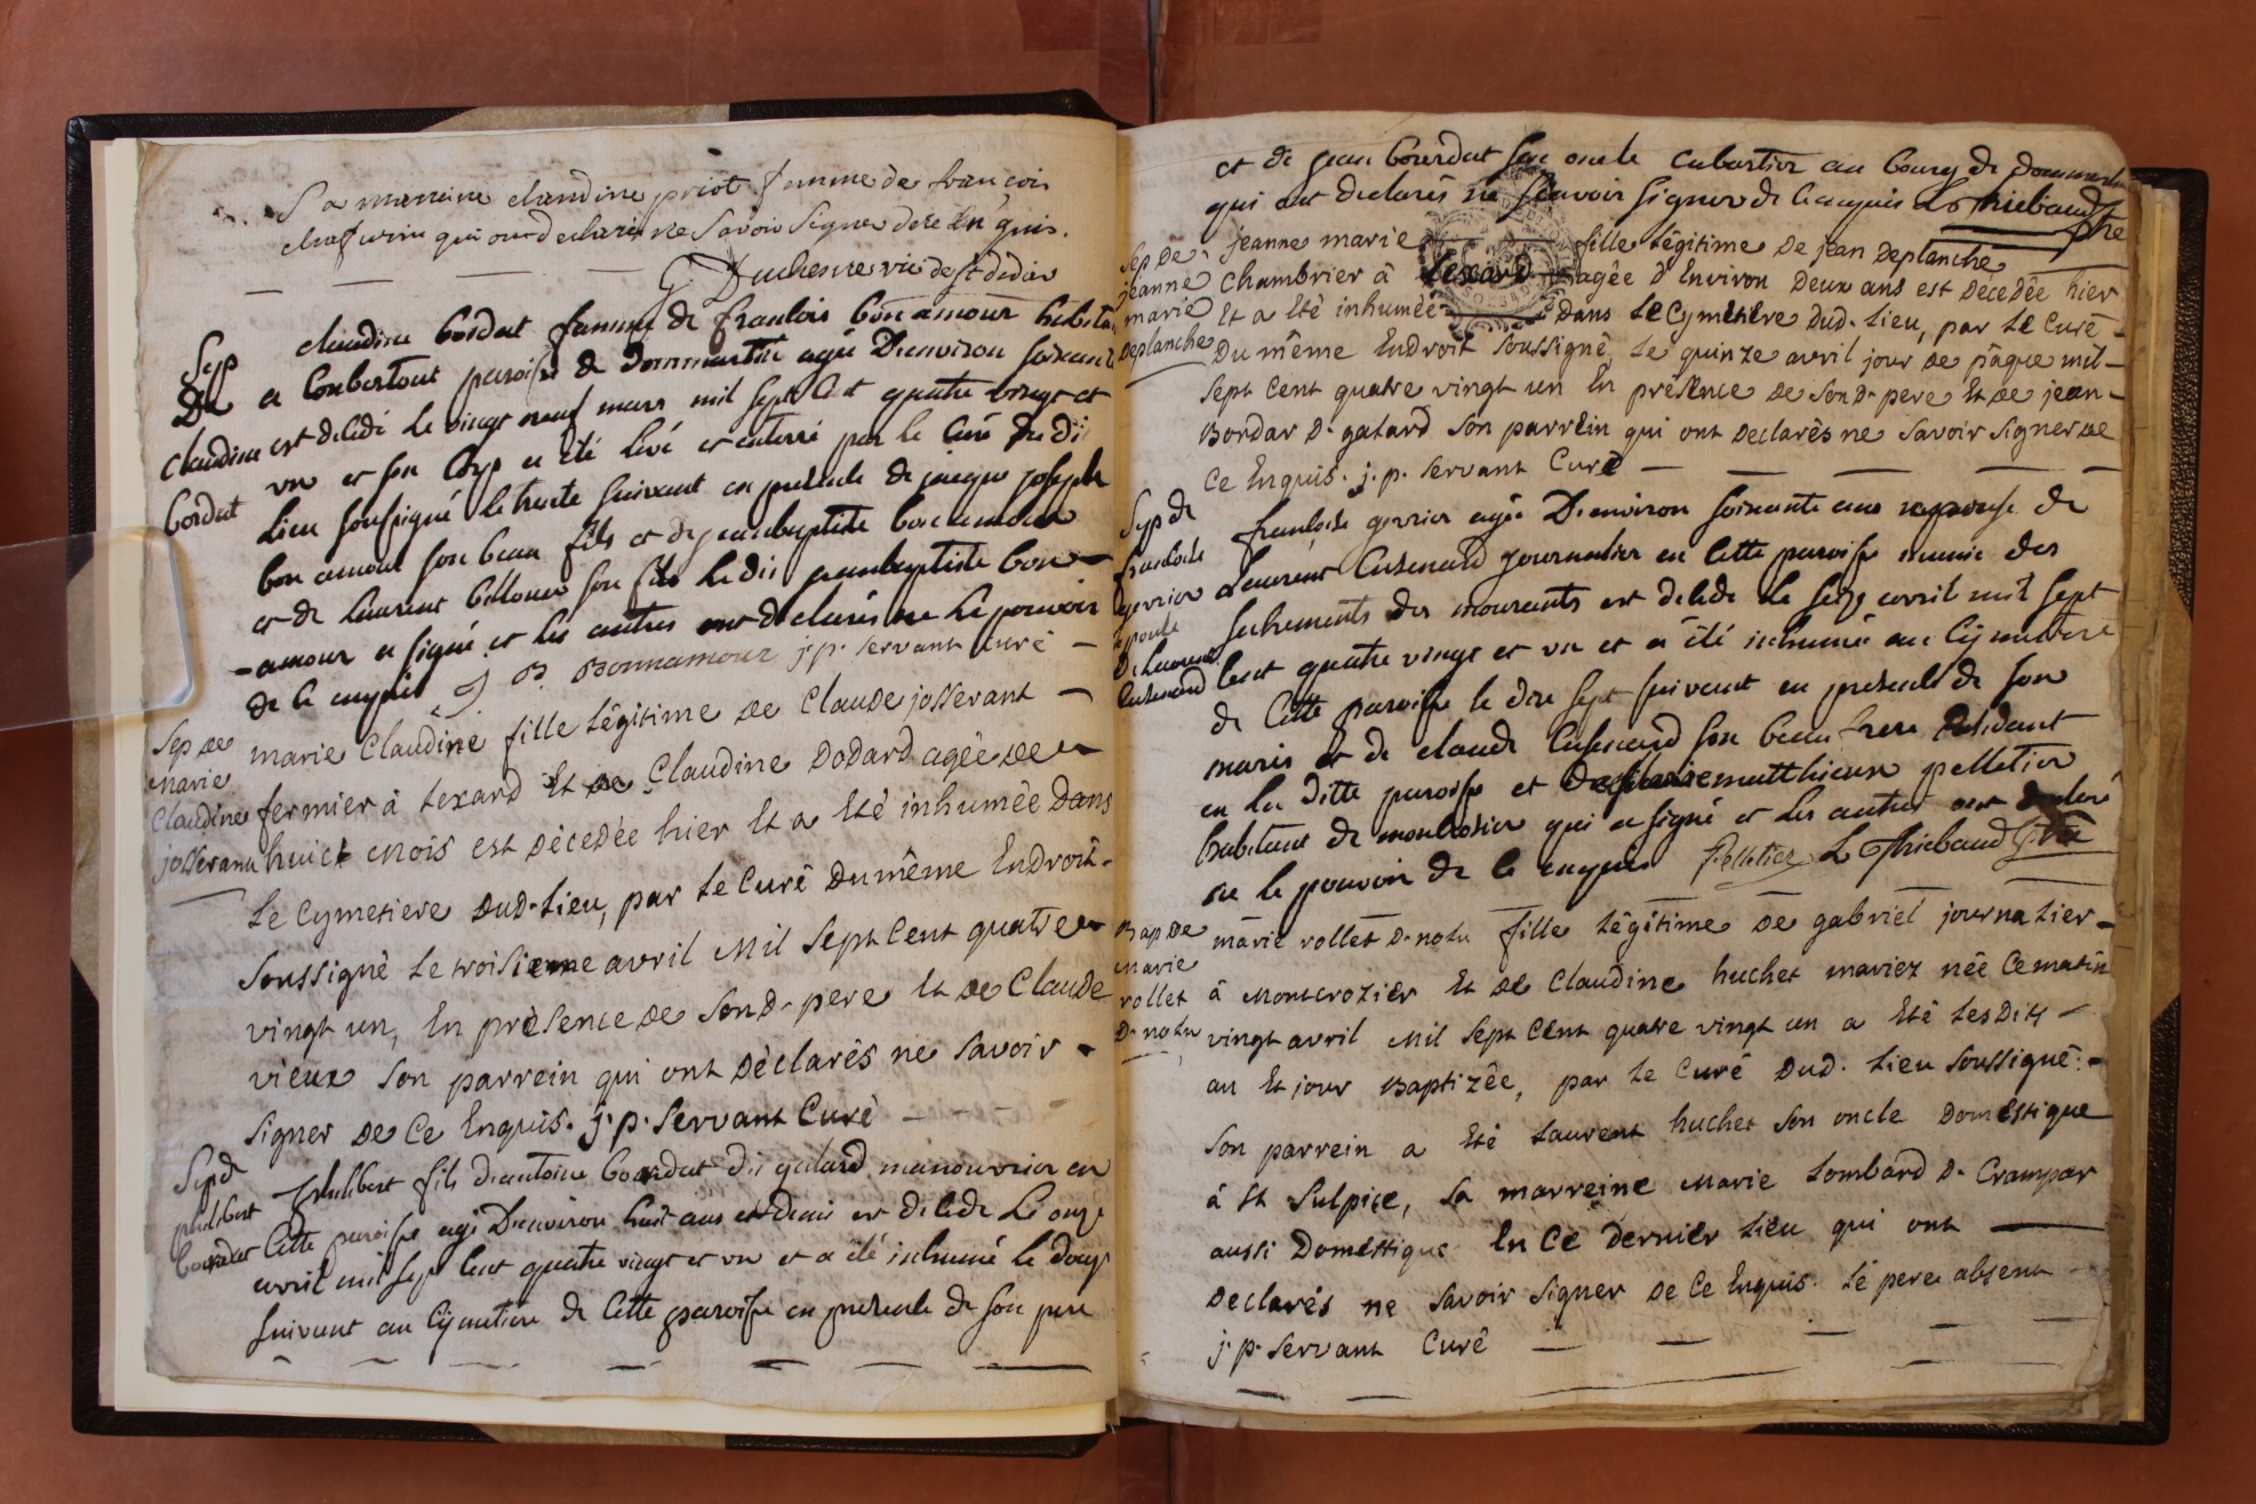 Sa marreine claudine priot femme de francois
qui ont declarés ne savoir signer de ce enquis.
Duchesne vic de st didier
Sep
De
claudine
bordat
claudine bordat femme de francois bon amour habita
a Conbertout paroisse de dommartin agée D'environ soixante
est decedé le vingt neuf mars mil sept Cent quatre vingt et
un et son Corps a été levé et enterré par le Curé du dit
lieu soussigné le trente suivant en presence de jacque joseph
bon amour son beau fils et de jeanbaptiste bon amour
et de laurent son fils le dit jeanbaptiste bon
-amour a signé et les autres ont declarés ne le pouvoir
de ce enquis J B Bonnamour j. p. servant curé -
Sep de
marie
Claudine
josserant
marie Claudine fille légitime de Claude josserant -
fermier à Lexard Et de Claudine Dodard agée de
huict mois est décedée hier Et a Eté inhumée Dans
Le Cymetiere dud. Lieu, par le Curé du même Endroit -
Soussigné Le troisieme avril Mil Sept Cent quatre
vingt un, En présence de Sond. pere Et de Claude
vieux Son parrein qui ont déclarés ne Savoir -
Signer de Ce Enquis. j. p. Servant Curé - - -
Sep de
philibert
bordat
philibert fils d'antoine bordat dit galard manouvrier en
Cette paroisse agé D'environ huit ans et demi est decedé Le onze
avril mil sept Cent quatre vingt et un et a été inhumé le douze
suivant au Cymetiere de Cette paroisse en presence de son pere
et de jean bourdat son oncle cabartier au bourg de dommartin
qui ont declarés ne sçavoir signer de ce enquis L. Thiebaud ptre
Sep de
jeanne
marie
deplanche
jeanne marie fille Légitime de jean deplanche
Chambrier à Lexard agée d'Environ Deux ans est Décedée hier
Et a Eté inhumée dans Le Cymetiere dud. Lieu, par Le Curé -
Du même Endroit Soussigné, Le quinze avril jour de pâque mil -
Sept Cent quatre vingt un En présence de Son d. pere Et de jean -
Bordar d. galard Son parrein qui ont declarés ne Savoir Signer de
Ce Enquis. j. p. Servant Curé -
Sep de
francoise
epouse
De laurent
francoise agée D'environ soixante ans epouse de
Laurent journalier en Cette paroisse munie des
sacrements des mourants est decede le seize avril mil sept
Cent quatre vingt et un et a été inhumé au Cymetiere
de Cette paroisse le dix sept suivant en presence de son
maris et de claude son beau frere residant
en la ditte paroisse et de matthieux pelletier
habitant de moncrosier qui a signé et les autres ont declaré
ne le pouvoir de ce enquis Pelletier L Thiebaud ptre
Bap de
Marie
rollet
d. notu
marie rollet d. notu fille Légitime de gabriel journalier -
à Moncrozier Et de Claudine huchet mariez née Ce matin
vingt avril Mil Sept Cent quatre vingt un a Eté Les dits -
an Et jour Baptizée, par Le Curé dud. Lieu Soussigné: -
Son parrein a Eté Laurent huchet Son oncle domestique
à St Sulpice, Sa marreine Marie Lombard d. Crampar
aussi Domestique En Ce dernier Lieu qui ont
declarés ne Savoir Signer de Ce Enquis. Le pere absent
j. p. Servant Curé -